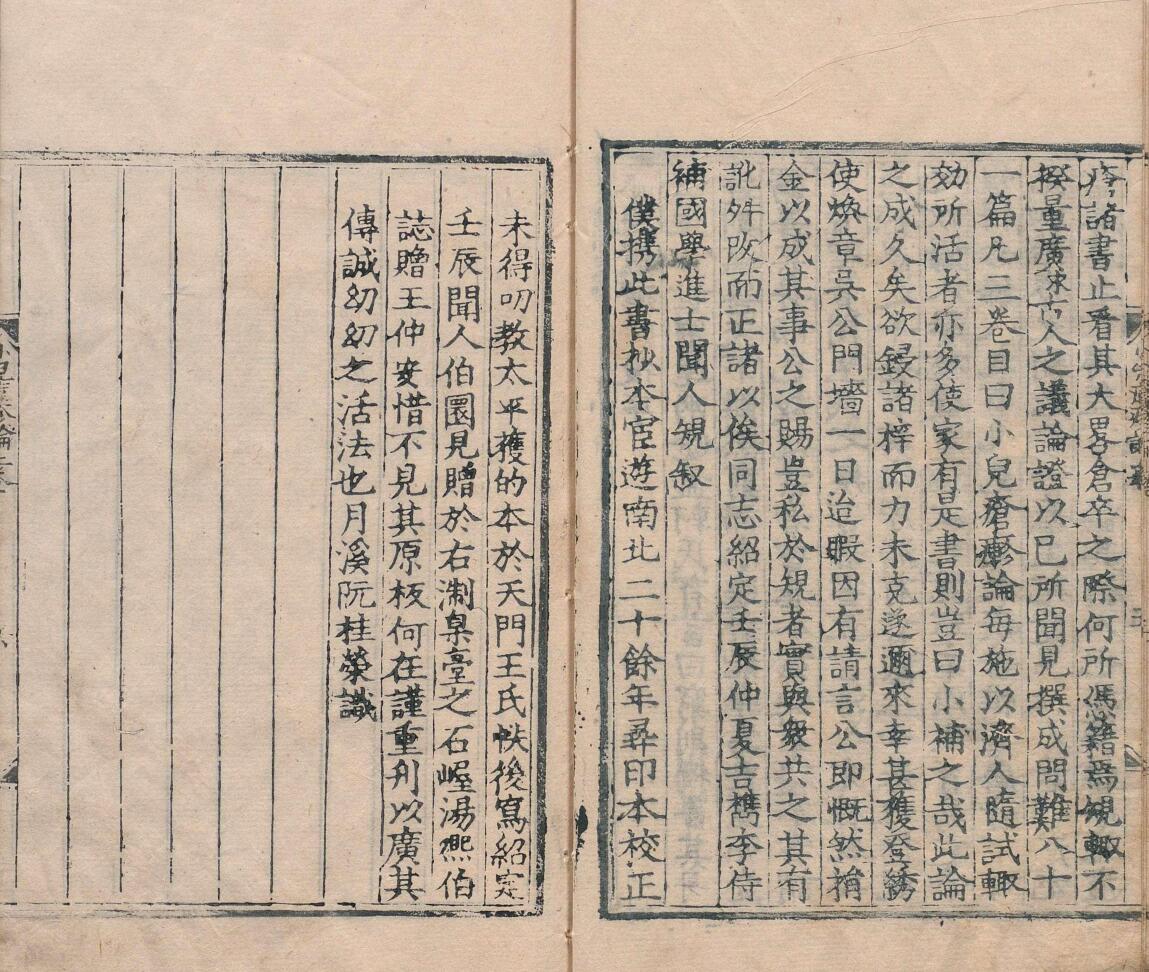 疹諸書止看其大畧倉卒之際何所憑籍焉規輙不
揆量廣求古人之議論證以已所聞見撰成問難八十
一篇凡三卷目曰小兒瘡疹論每施以濟人隨試輙
効所活者亦多使家有是書則豈曰小補之哉此論
之成久矣欲鋟諸梓而力未克遂邇來幸甚獲登綉
使煥章吳公門墻一日迨暇因有請言公即慨然捐
金以成其事公之賜豈私於規者實與衆共之其有
訛舛改而正諸以俟同志紹定壬辰仲夏吉檇李待
補國學進士聞人規叙
僕携此書抄本宦遊南北二十餘年尋印本校正
未得叨教太平獲的本於天門王氏帙後寫紹定
壬辰聞人伯圜見贈於右淛臬臺之石崌湯熙伯
誌贈王仲安惜不見其原板何在謹重刋以廣其
傳誠幼幼之活法也月溪阮桂榮識